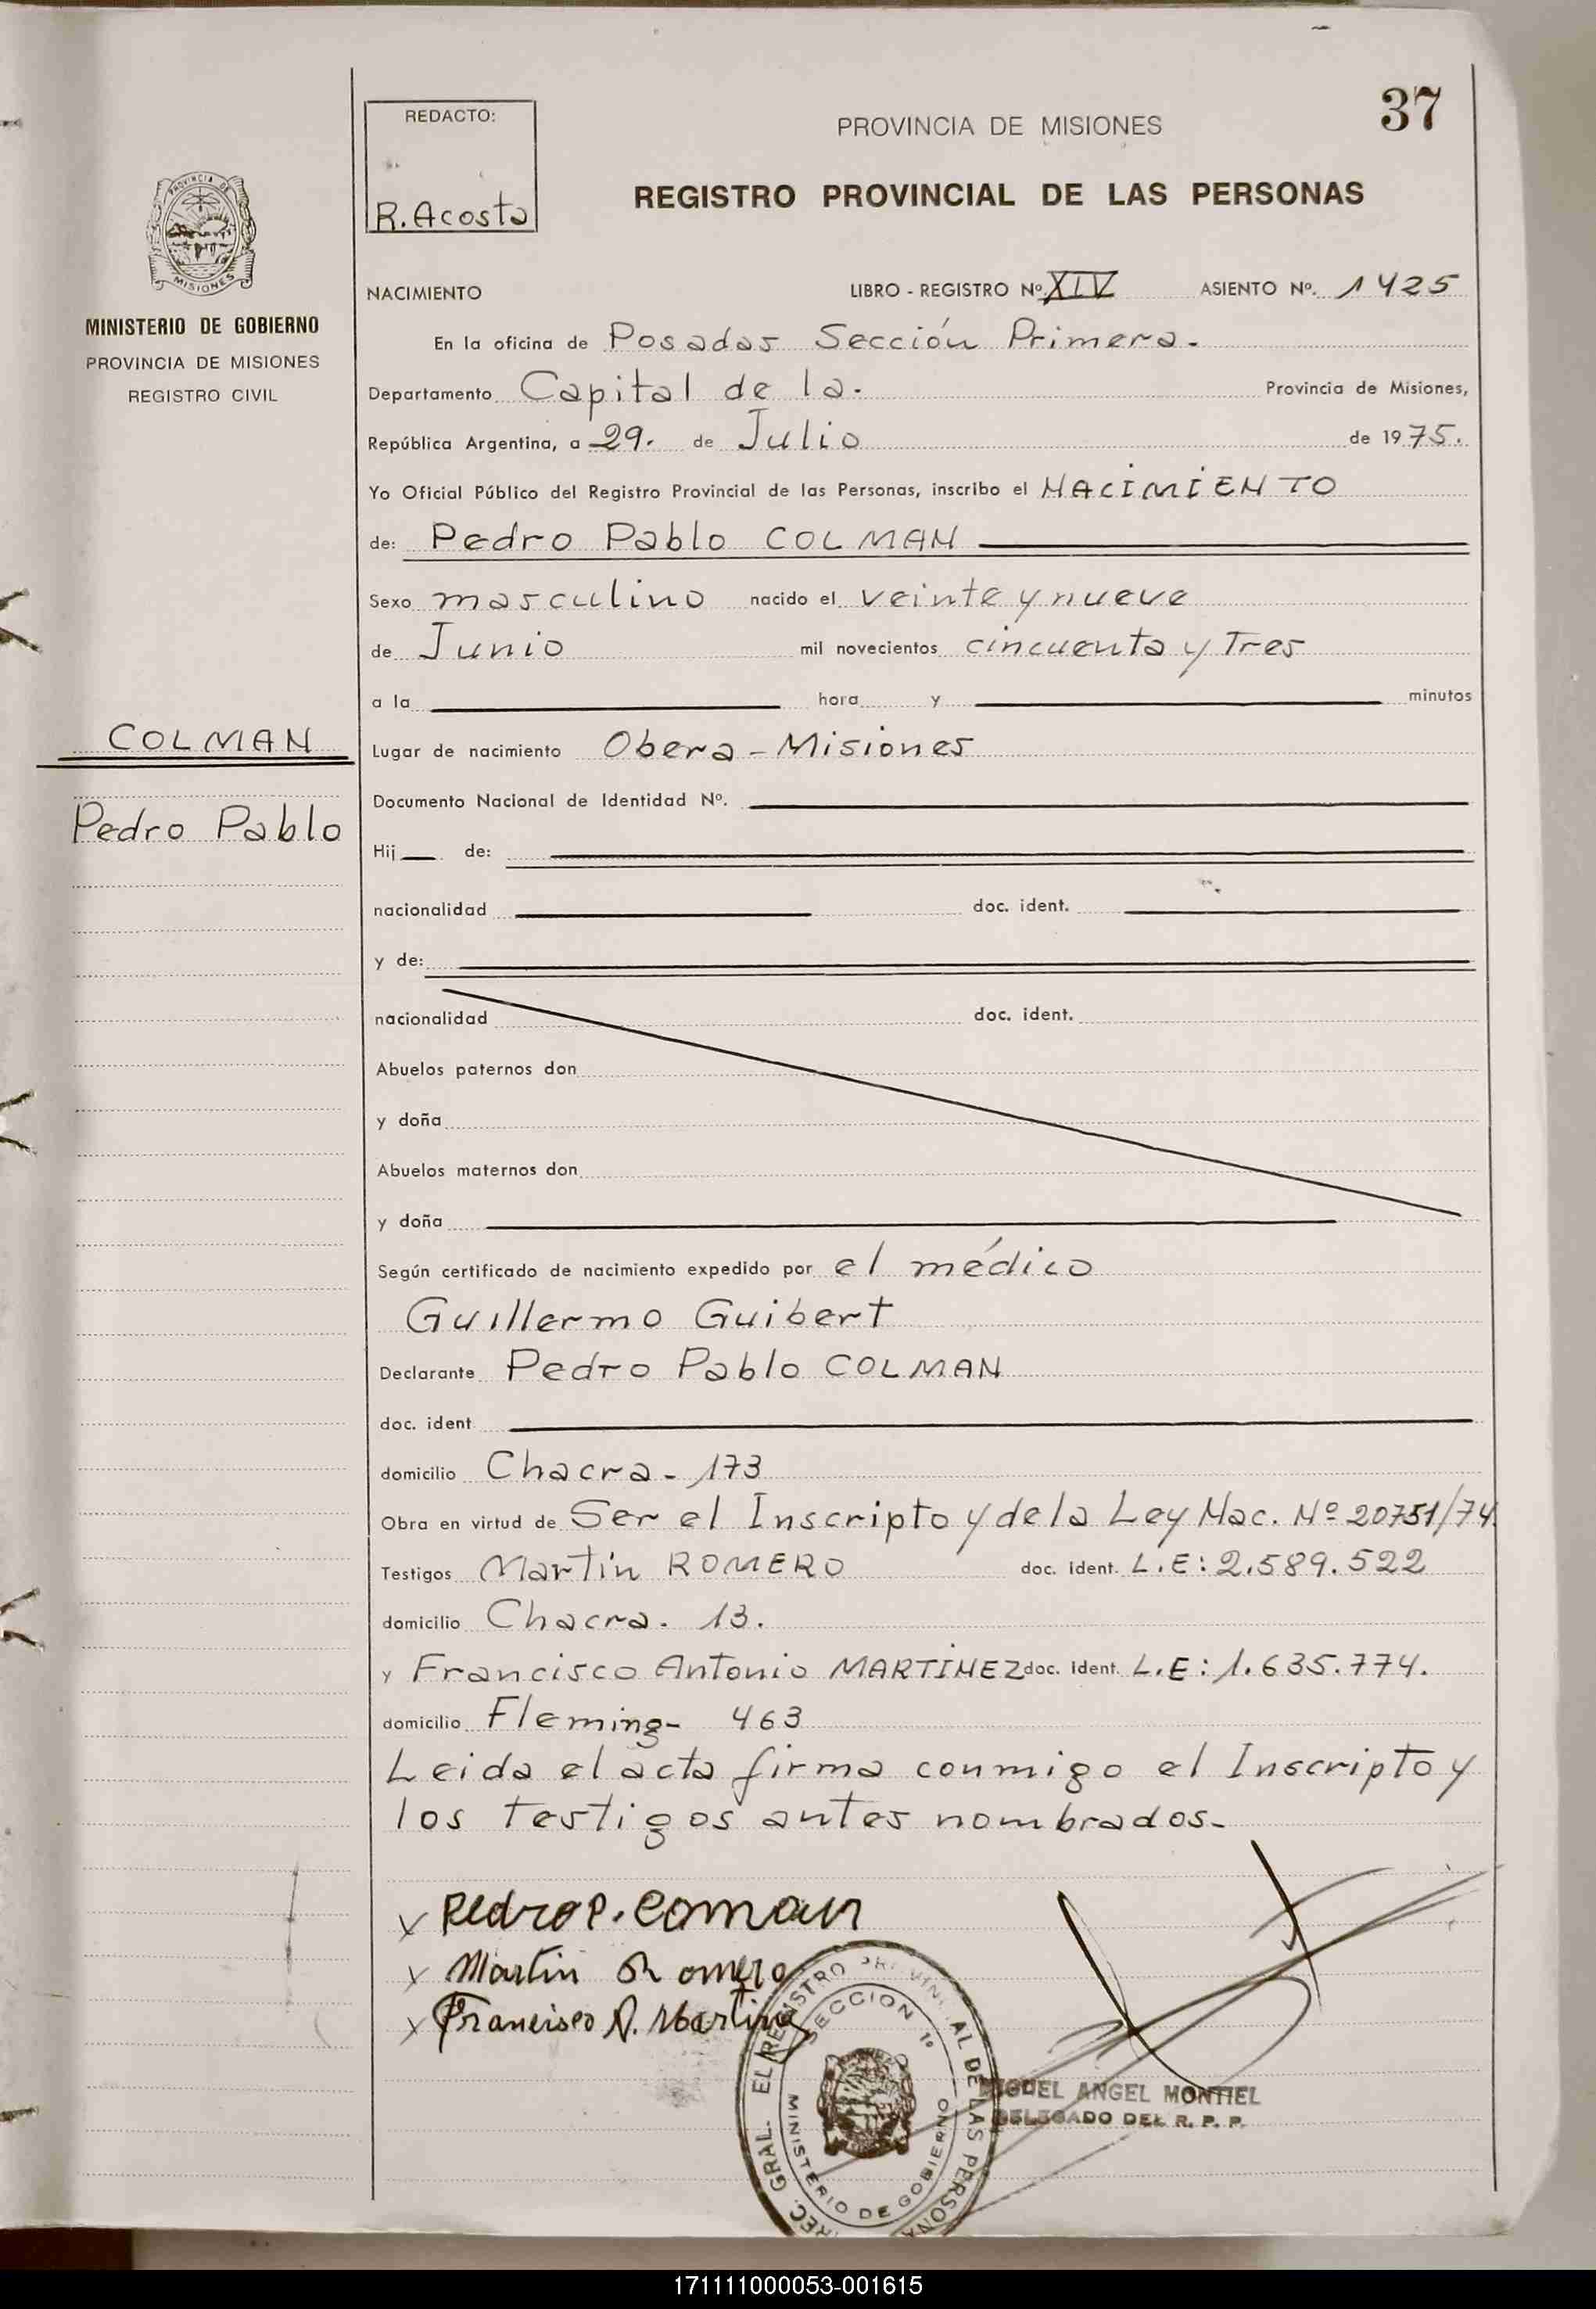 37
REDACTO:
R. Acosta
PROVINCIA DE MISIONES
REGISTRO PROVINCIAL DE LAS PERSONAS
PROVINCIA DE
MISIONES
MINISTERIO DE GOBIERNO
PROVINCIA DE MISIONES
REGISTRO CIVIL
COLMAN
Pedro Pablo
NACIMIENTO LIBRO - REGISTRO Nº XIV ASIENTO Nº. 1425
En la oficina de Posadas Sección Primera.
Departamento Capital de la. Provincia de Misiones,
República Argentina, a 29. de Julio de 1975.
Yo Oficial Público del Registro Provincial de las Personas, inscribo el NACIMIENTO
de: Pedro Pablo COLMAN
Sexo masculino nacido el veinte y nueve
de Junio mil novecientos cincuenta y Tres
a la hora y minutos
Lugar de nacimiento Obera - Misiones
Documento Nacional de Identidad Nº.
Hij de:
nacionalidad doc. ident.
y de:
nacionalidad doc. ident.
Abuelos paternos don
y doña
Abuelos maternos don
y doña
Según certificado de nacimiento expedido por el médico
Guillermo Guibert
Declarante Pedro Pablo COLMAN
doc. ident
domicilio Chacra - 173
Obra en virtud de Ser el Inscripto y de la Ley Nac. Nº 20751/74.
Testigos Martin ROMERO doc. ident. L.E: 2.589.522
domicilio Chacra. 13.
y Francisco Antonio MARTINEZ doc. ident. L.E: 1.635.774.
domicilio Fleming - 463
Leida el acta firma conmigo el Inscripto y
los testigos antes nombrados.-
x Pedro P. Coman
x Martin Romero
x Francisco A. Martinez
REC. GRAL. EL REGISTRO PROVINCIAL DE LAS PERSONA
SECCION 1º
MINISTERIO DE GOBIERNO
MIGUEL ANGEL MONTIEL
DELEGADO DEL R. P. P.
171111000053-001615